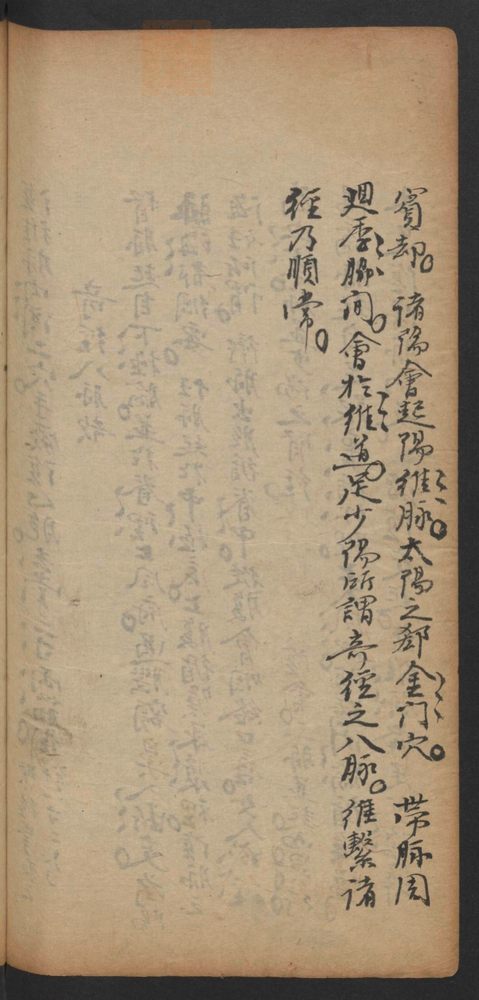 賓郄。諸陽會起陽維脉。太陽之郄金门穴。帶脉周
廻季脇间。會於維道足少陽所謂竒經之八脉。維繫诸
經乃順常。